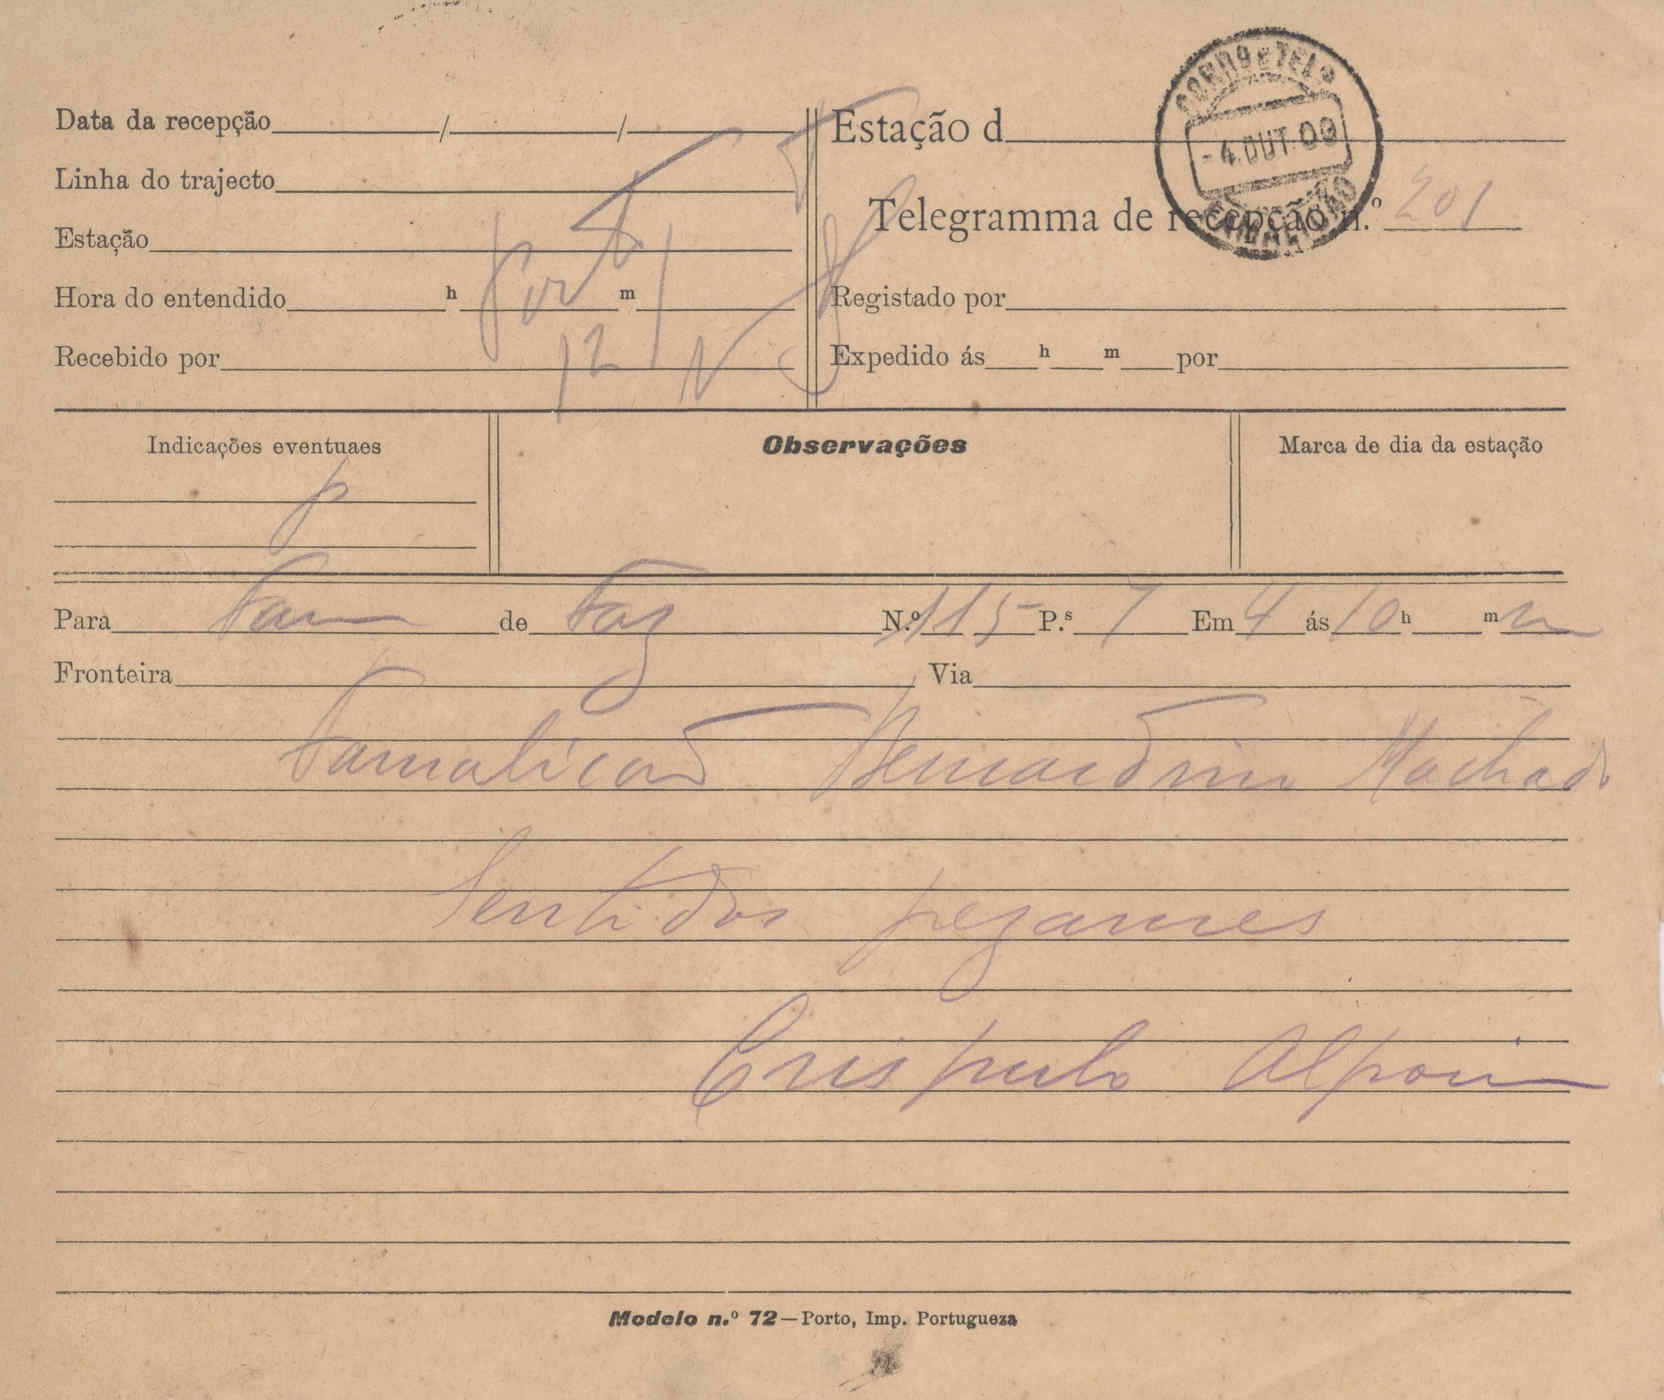 CORRO E TELO
-4.OUT.09
FAMALICÃO
Data da recepção / /
Linha do trajecto
Estação
Hora do entendido h m
Recebido por
Porto
12
Estação d
Telegramma de recepção n.º 201
Registado por
Expedido ás h m por
Indicações eventuaes
p
Observações
Marca de dia da estação
Para Fam de Foz N.º 115 P.s 7 Em 4 ás 10 h m m
Fronteira Via
Famalicão Bernardino Machado
Sentidos pezames
Crispulo Alpoim
Modelo n.º 72—Porto, Imp. Portugueza